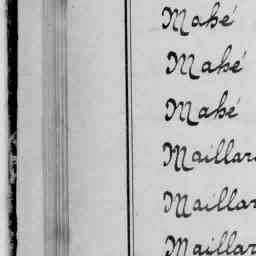 Mahé
Mahé
Mahé
Maillar
Maillar
Maillar